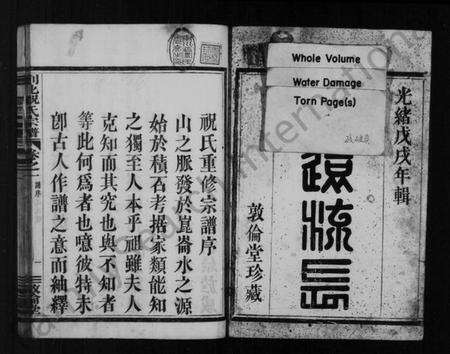 光緒戊戌年輯
遠流長
敦倫堂珍藏
Whole Volume
Water Damage
Torn Page(s)
祝氏重修宗譜序
山之脈發於崑崙水之源
始於積石考据家類能知
之獨至人本乎祖雖夫人
克知而其究也與不知者
等此何為者也噫彼特未
卽古人作譜之意而紬繹
祝氏宗譜
卷之一
譜序
一